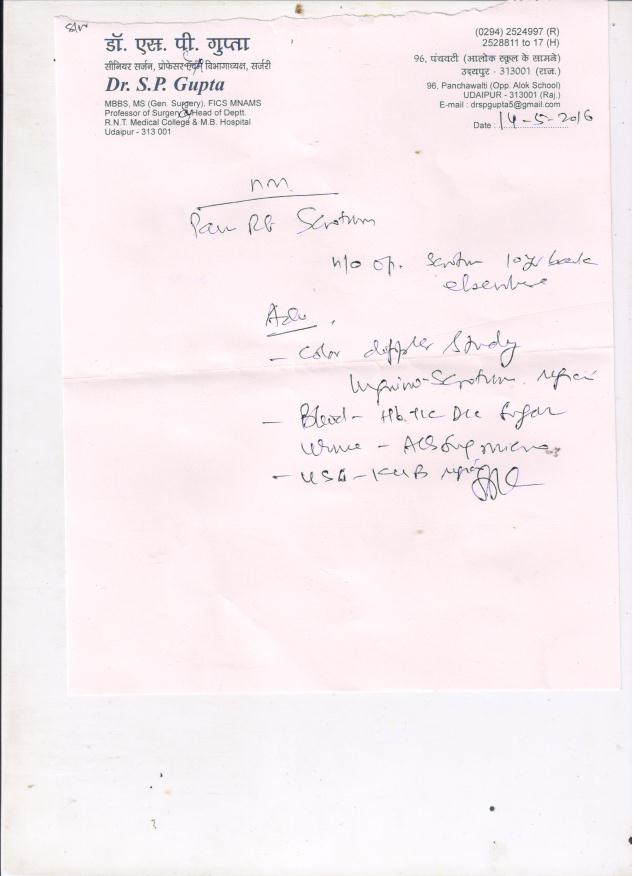 डॉ. एस. पी. गुप्ता
सीनियर सर्जन, प्रोफेसर एवं विभागाध्यक्ष, सर्जरी
Dr. S.P. Gupta
MBBS, MS (Gen. Surgery), FICS MNAMS
Professor of Surgery & Head of Deptt.
R.N.T. Medical College & M.B. Hospital
Udaipur - 313 001
(0294) 2524997 (R)
2528811 to 17 (H)
96, पंचवटी (आलोक स्कूल के सामने)
उदयपुर - 313001 (राज.)
96, Panchawati (Opp. Alok School)
UDAIPUR - 313001 (Raj.)
E-mail : drspgupta5@gmail.com
Date : 14-5-2016
Pain Rt Scrotum
h/o op. Scrotum 10 yr back
elsewhere
Adv.
- Color doppler Study
Inguino-Scrotum region
- Blood - Hb TLC DLC Sugar
Urine - Alb Sug micro
- USG - KUB region